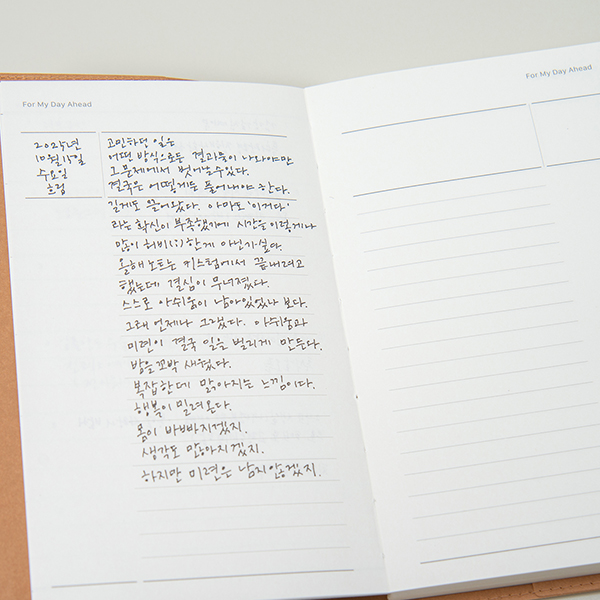 For My Day Ahead
2024년
10월 1일
수요일
흐림
고민하던 일은
어떤 방식으로든 결과물이 나와야만
그 문제에서 벗어날수있다.
결국은 어떻게든 풀어나야 한다.
길게도 끌어왔다. 아마도 '이거다'
라는 확신이 부족했기에 시간을 이렇게나
많이 허비(;)한게 아닌가 싶다.
올해 노트는 커스텀에서 끝내려고
했는데 결심이 무너졌다.
스스로 아쉬움이 남아있었나 보다.
그래 언제나 그랬다. 아쉬움과
미련이 결국 일을 벌리게 만든다.
밤을 꼬박 새웠다.
복잡한데 맑아지는 느낌이다.
행복이 밀려온다.
몸이 바빠지겠지.
생각도 많아지겠지.
하지만 미련은 남지않겠지.
For My Day Ahead